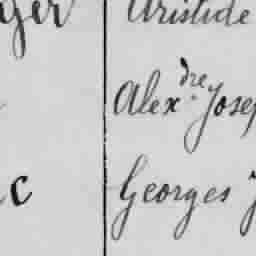 ger Aristide
Alex.dre Josep
c Georges J